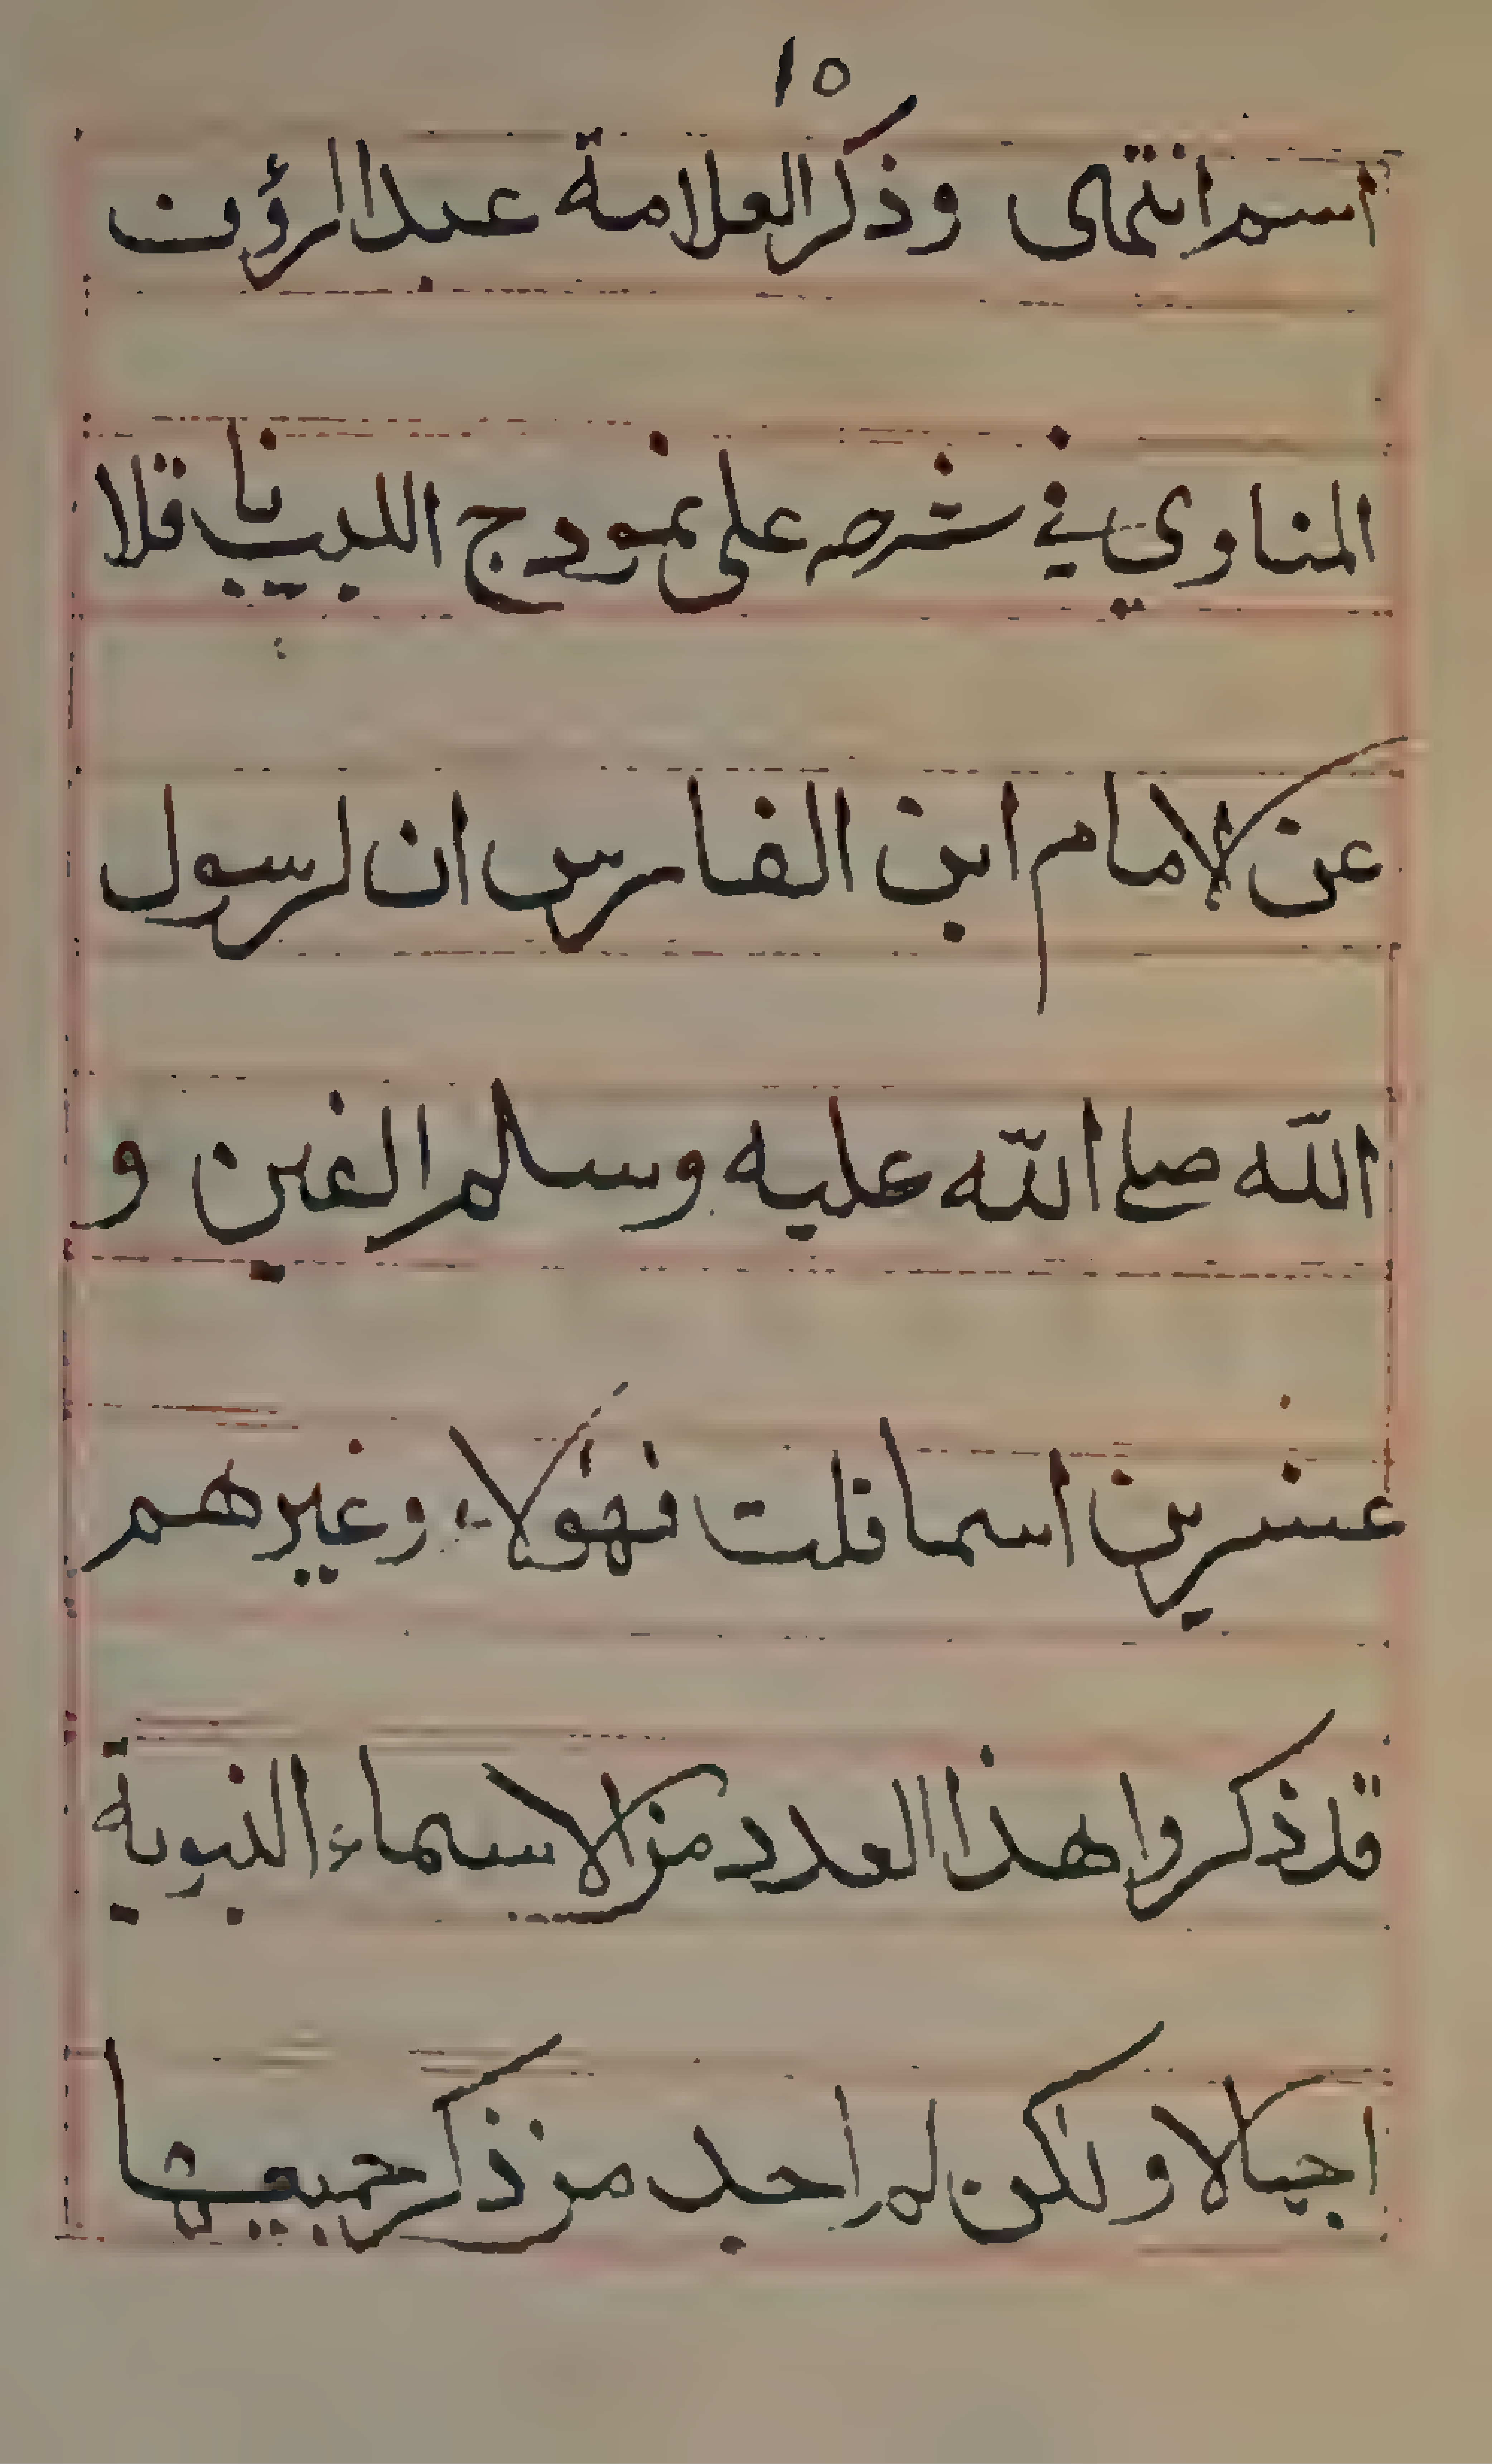 ١٥
اسم انتهى وذكر العلامة عبد الرؤف
المناوي في شرحه على نموذج اللبيب ناقلا
عن الامام ابن الفارس ان لرسول
الله صلى الله عليه وسلم الفين و
عشرين اسما قلت فهؤلاء وغيرهم
قد ذكروا هذا العدد من الاسماء النبوية
اجمالا ولكن لم اجد من ذكر جميعها